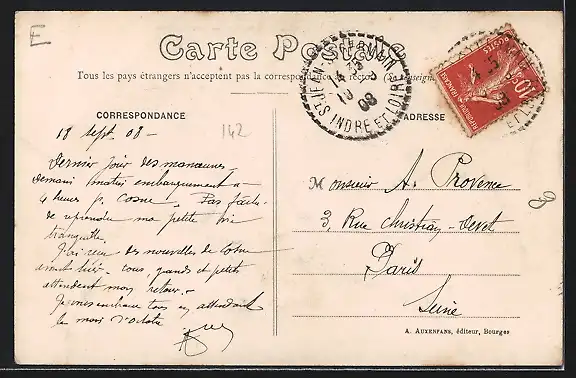 E
Carte Postale
Tous les pays étrangers n'acceptent pas la correspondance au recto (Se renseigner
CORRESPONDANCE
ADRESSE
18 Sept 08 -
142
Dernier jour des manœuvres
demain matin embarquement à
4 heures p. Cosne! Pas fâché
de reprendre ma petite vie
tranquille.
J'ai reçu des nouvelles de Cosne
avant hier. Tous, grands et petits
attendent mon retour. -
Je vous embrasse tous en attendant
le mois d'octobre
Monsieur A. Provence
3, Rue Christian-Devet
Paris
Seine
A. AUXENFANS, éditeur, Bourges
INDRE ET LOIRE
08
REPUBLIQUE FRANÇAISE
POSTES
10